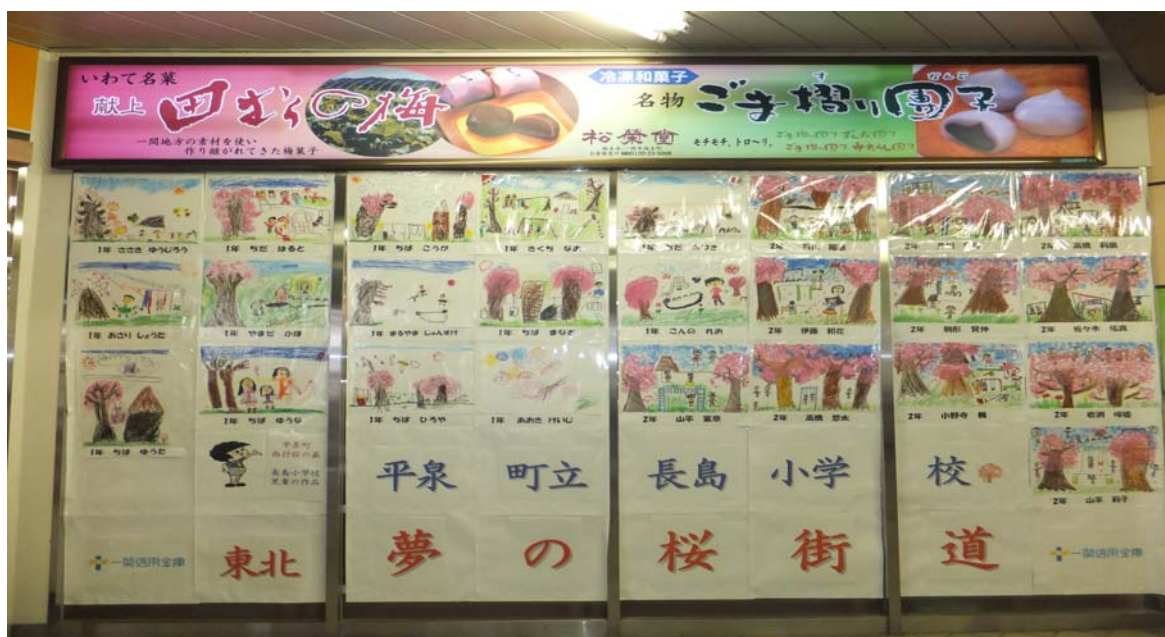 いわて名菓
献上 田むらの梅
一関地方の素材を使い
作り継がれてきた梅菓子
冷凍和菓子
名物 ごま摺り團子
す
だんご
松榮堂
モチモチ、トロ〜リ。
1年 ささき ゆうじろう
1年 ちだ はると
1年 ちば こうが
1年 きくち なお
2年 高橋 莉愛
1年 あさり しょうた
1年 やまだ かほ
1年 まるやま しゅんすけ
1年 ちば まなと
1年 こんの れお
2年 伊藤 和花
2年 駒形 賢伸
2年 佐々木 佑真
1年 ちば ゆうな
1年 ちば ひろや
1年 あおき けいじ
2年 山平 葉奈
2年 高橋 悠水
2年 小野寺 楓
2年 岩渕
1年 ちば ゆうた
2年 山平 莉子
平泉町
西行桜の森
長島小学校
児童の作品
平泉 町立 長島 小学 校
一関信用金庫
東北 夢 の 桜 街 道
一関信用金庫